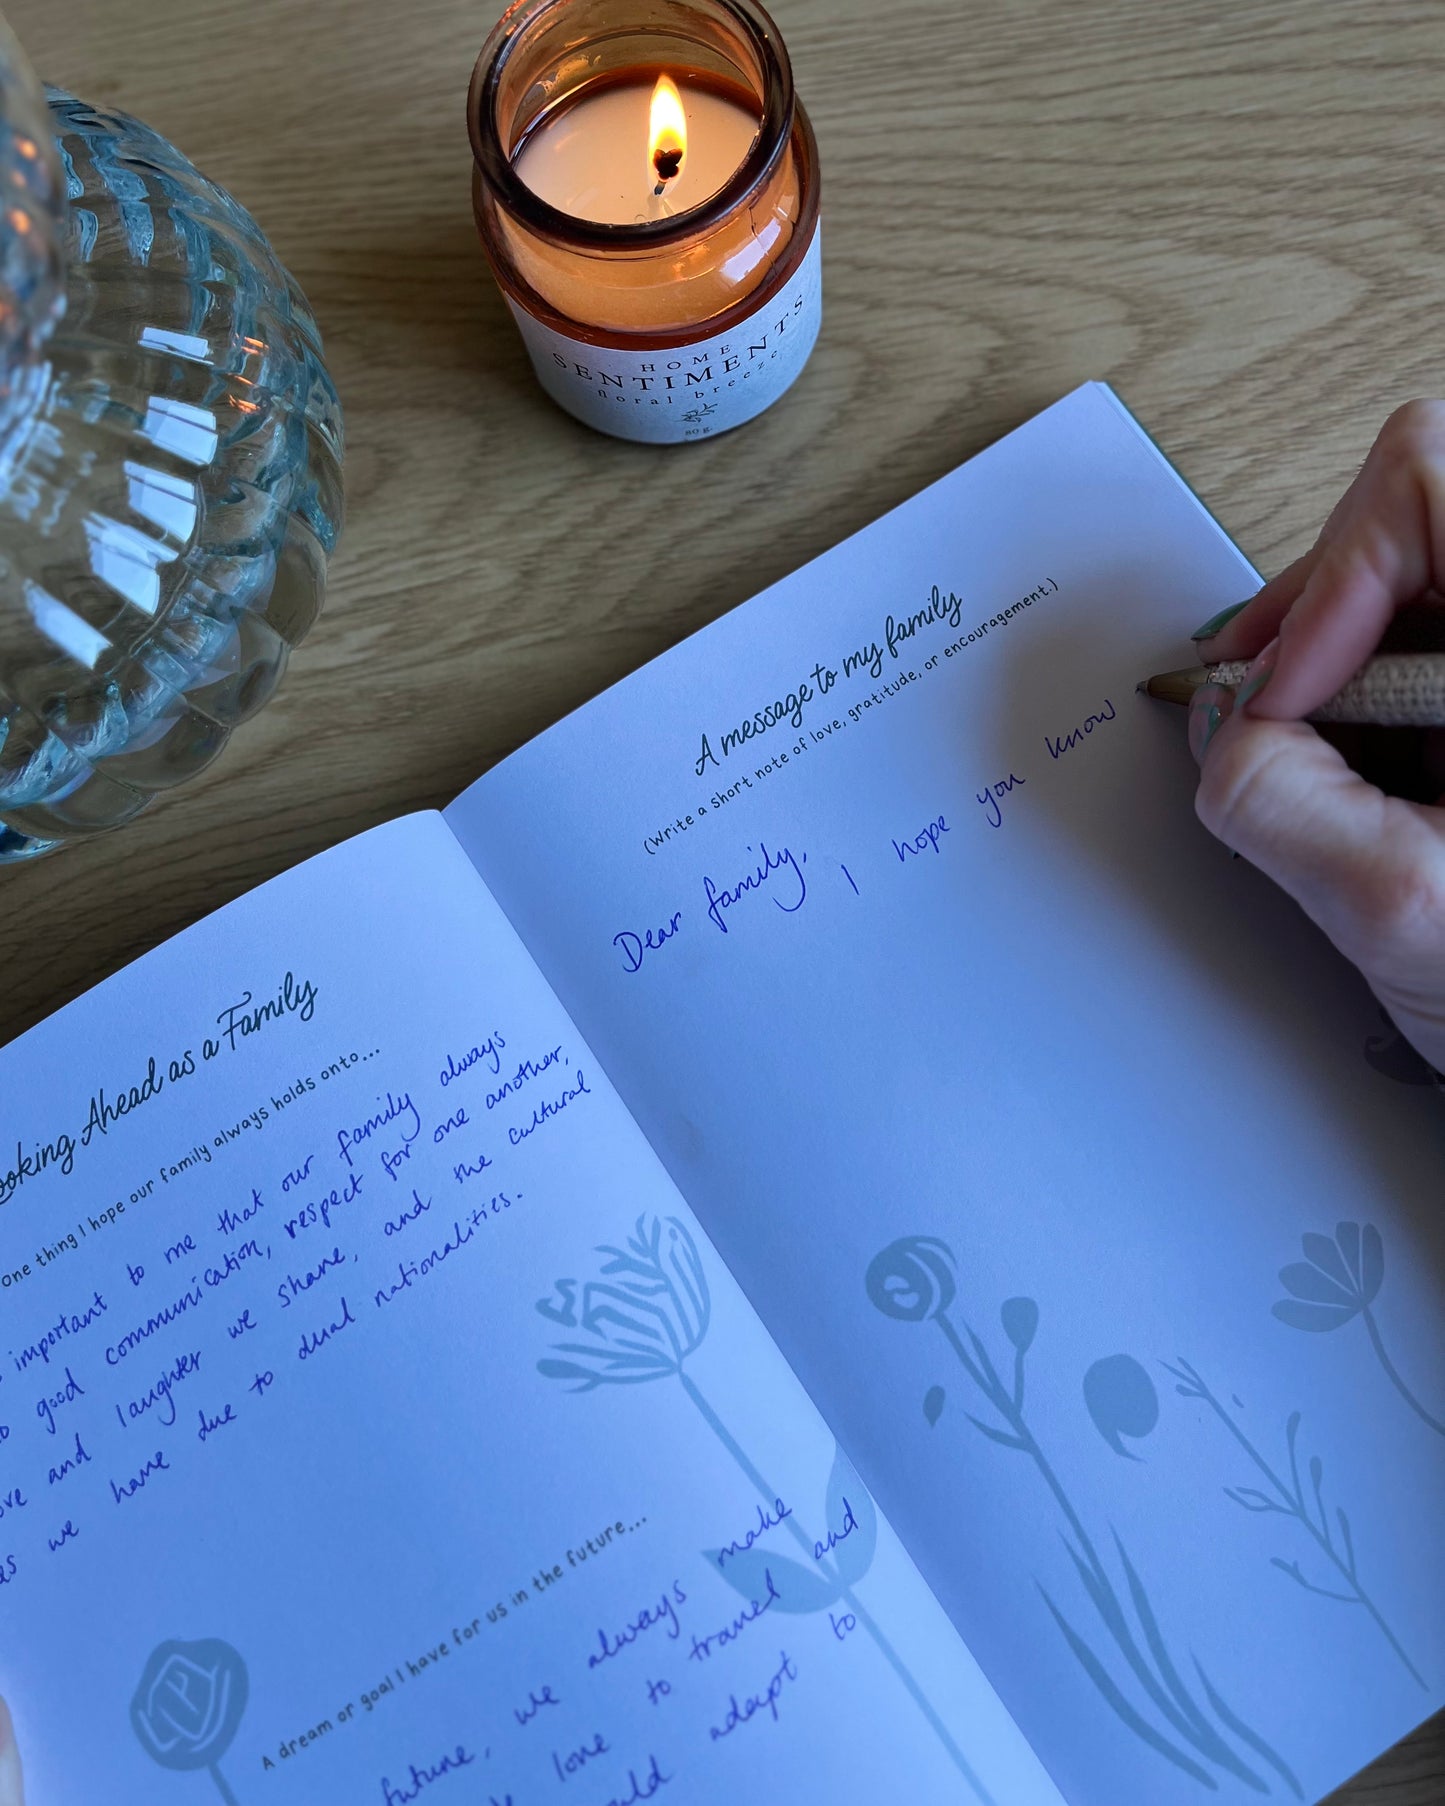 HOME
SENTIMENTS
floral breeze
80 g.
Looking Ahead as a Family
One thing I hope our family always holds onto...
important to me that our family always
good communication, respect for one another,
and laughter we share, and the cultural
we have due to dual nationalities.
A dream or goal I have for us in the future...
future, we always make
love to travel and
adapt to
A message to my family
(Write a short note of love, gratitude, or encouragement.)
Dear family,
I hope you know